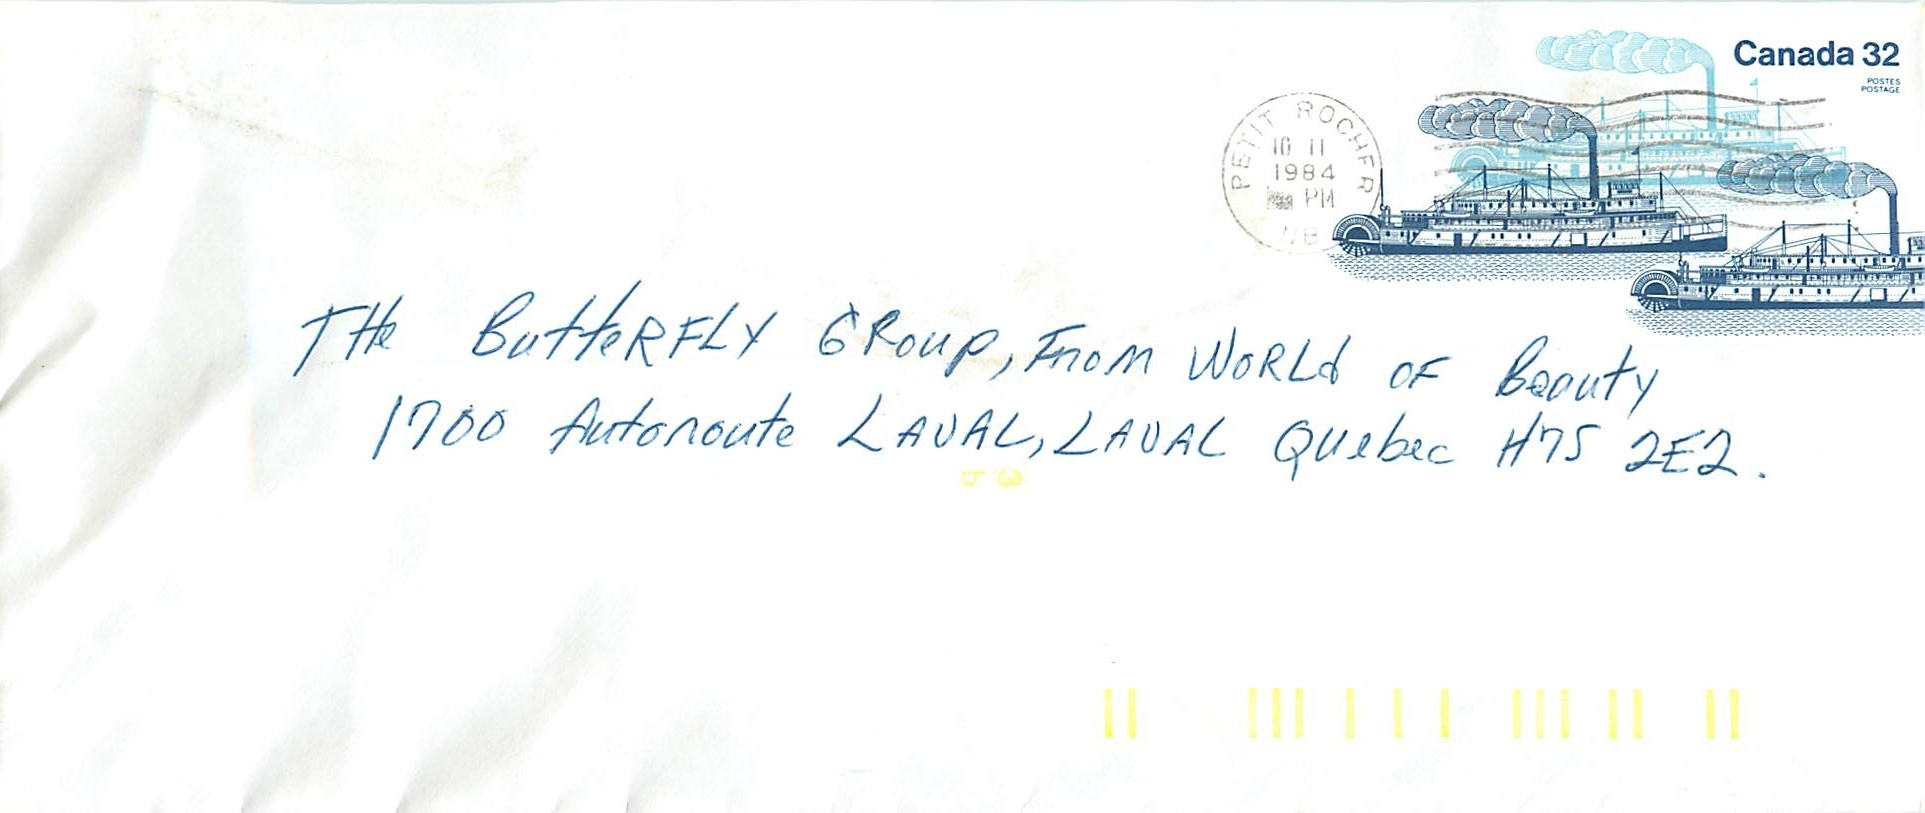 Canada 32
POSTES
POSTAGE
PETIT ROCHER
10 11
1984
PM
NB
THe ButteRFLY GRoup, FRom WORLd OF Beauty
1700 Autoroute LAVAL, LAVAL Quebec H7S 2E2.